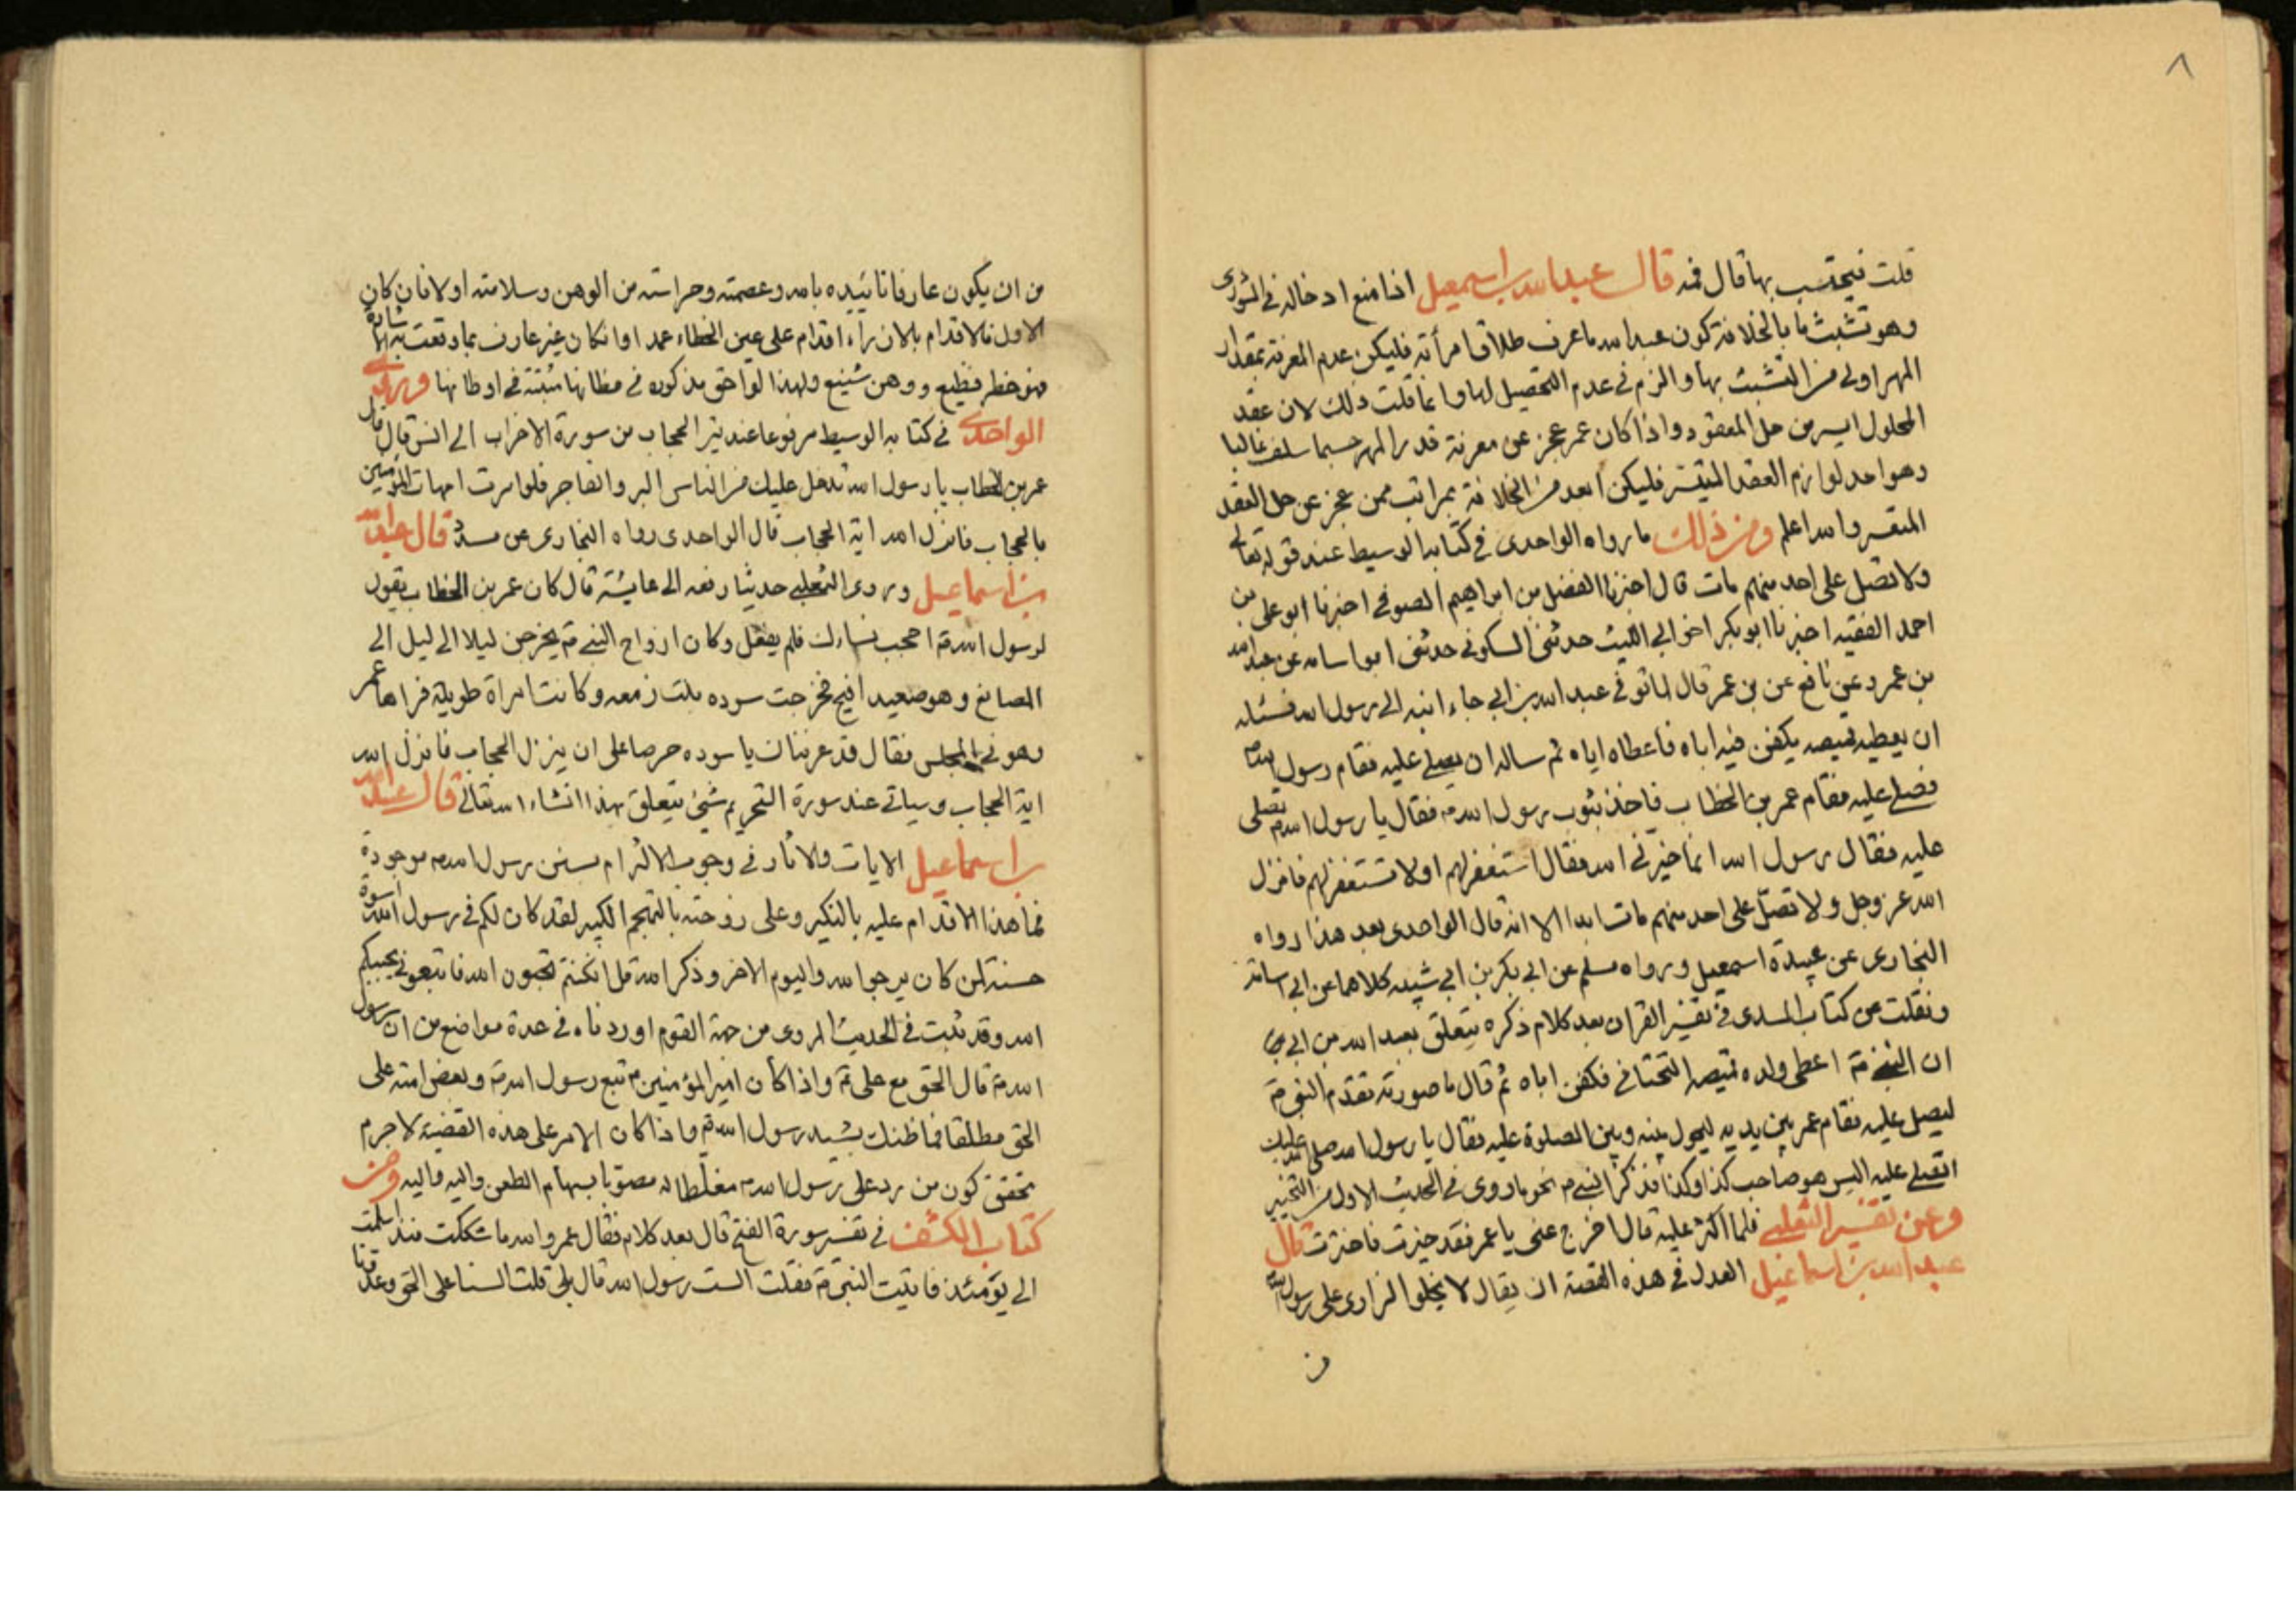 ٨
قلت فيحتسب بها قال فمه قال عبد الله بن اسمعيل اذا منع ادخاله في الشورى
وهو تشبث ما بالخلافة كون عبد الله ما عرف طلاق امرأته فليكن عدم المعرفة بمقدار
المهر اولى من التشبث بها والزم في عدم التحصيل لها وانما قلت ذلك لان عقد
المحلول ايسر من حل المعقود واذا كان عمر عجز عن معرفة قدر المهر حسبما سلف غالبا
وهو احد لوازم العقد المتيسر فليكن ابعد من الخلافة بمراتب ممن عجز عن حل العقد
المتعسر والله اعلم ومن ذلك ما رواه الواحدى في كتابه الوسيط عند قوله تعالى
ولا تصل على احد منهم مات قال اخبرنا الفضل بن ابراهيم الصوفي اخبرنا ابو على بن
احمد الفقيه اخبرنا ابو بكر اخو ابي الليث حدثني السكوني حدثني ابو اسامه عن عبد الله
بن عمر وعن نافع عن بن عمر قال لما توفي عبد الله بن ابي جاء ابنه الى رسول الله فسئله
ان يعطيه قميصه يكفن فيه اباه فاعطاه اياه ثم ساله ان يصلي عليه فقام رسول الله
فصلي عليه فقام عمر بن الخطاب فاخذ بثوب رسول الله فقال يا رسول الله تصلى
عليه فقال رسول الله انما خيرني الله فقال استغفر لهم او لا تستغفر لهم فانزل
الله عز وجل ولا تصل على احد منهم مات ابدا الا انه قال الواحدى بعد هذا رواه
البخارى عن عبيدة اسمعيل ورواه مسلم عن ابي بكر بن ابي شيبه كلاهما عن ابي اسامة
ونقلت من كتاب السدى في تفسير القران بعد كلام ذكره يتعلق بعبد الله بن ابي
ان النبي اعطى ولده قميصه التحتاني فكفن اباه ثم قال ما صورته تقدم النبي
ليصل عليه فقام عمر بين يديه ليحول بينه وبين الصلوة عليه فقال يا رسول الله صلى الله عليك
اتصلي عليه اليس هو صاحب كذا وكذا فذكر النبي نحو ما روى في الحديث الاول من التخيير
وعن تفسير الثعلبي فلما اكثر عليه قال اخرج عني يا عمر فقد خيرت فاخترت قال
عبد الله بن اسماعيل العدل في هذه القصة ان يقال لا يخلوا الزارى على رسول الله
من
من ان يكون عارفا تاييده بالله وعصمته وحراسته من الوهن وسلامته اولا فان كان
الاول فالاقدام بالازراء اقدام على عين الخطاء عمدا وان كان غير عارف بما وقعت به الاشارة
فهو خطر فظيع ووهن شنيع ولهذا لواحق مذكوره في مظانها مثبتة في اوطانها وروى
الواحدى في كتابه الوسيط مرفوعا عند تفسير الحجاب من سورة الاحزاب الى انس قال قال
عمر بن الخطاب يا رسول الله تدخل عليك من الناس البر والفاجر فلو امرت امهات المؤمنين
بالحجاب فانزل الله اية الحجاب قال الواحدى رواه البخارى عن مسدد قال عبد الله
بن اسماعيل وروى الثعلبي حديثا رفعه الى عايشة قال كان عمر بن الخطاب يقول
لرسول الله احجب نساءك فلم يفعل وكان ازواج النبي يخرجن ليلا الى ليل الى
المصانع وهو صعيد افيح فخرجت سوده بنت زمعه وكانت امراة طويلة فراها عمر
وهو في المجلس فقال قد عرفناك يا سوده حرصا على ان ينزل الحجاب فانزل الله
اية الحجاب وسياتي عند سورة التحريم شئ يتعلق بهذا انشاء الله تعالى قال عبد الله
بن اسماعيل الايات والاثار في وجوب الالتزام بسنن رسول الله موجودة
فما هذا الاقدام عليه بالنكير وعلى زوجته بالتهجم الكبير لقد كان لكم في رسول الله اسوة
حسنة لمن كان يرجوا الله واليوم الاخر وذكر الله قل ان كنتم تحبون الله فاتبعوني يحببكم
الله وقد ثبت في الحديث المروى من جهة القوم اوردناه في عدة مواضع من ان رسول
الله قال الحق مع على واذا كان امير المؤمنين تبع رسول الله وبعض امته على
الحق مطلقا فما ظنك بسيد رسول الله واذا كان الامر على هذه القضية لا جرم
تحقق كون من رد على رسول الله مغلطا له مصوبا بسهام الطعن واليه فاليه ومن
كتاب الكشف في تفسير سورة الفتح قال بعد كلام فقال عمر والله ما شككت منذ اسلمت
الى يومئذ فاتيت النبي فقلت الست رسول الله قال بلى قلت السنا على الحق وعدونا